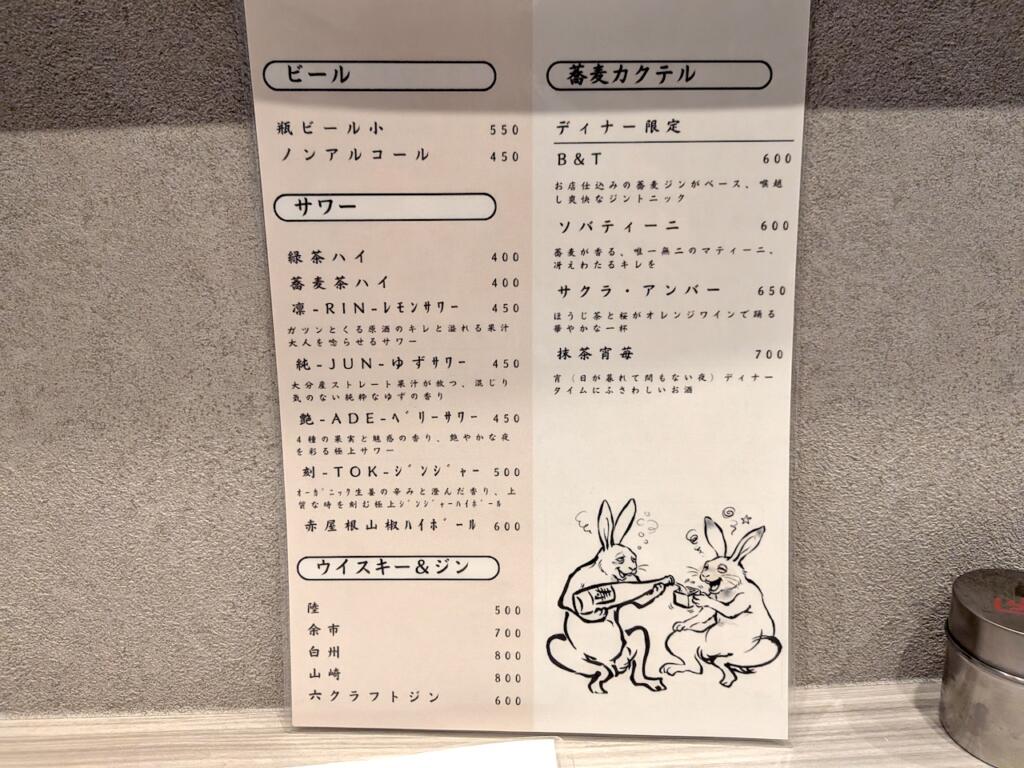 ビール
瓶ビール小 550
ノンアルコール 450
サワー
緑茶ハイ 400
蕎麦茶ハイ 400
凛-RIN-レモンサワー 450
ガツンとくる原酒のキレと溢れる果汁
大人を唸らせるサワー
純-JUN-ゆずサワー 450
大分産ストレート果汁が放つ、混じり
気のない純粋なゆずの香り
艶-ADE-ベリーサワー 450
4種の果実と魅惑の香り、艶やかな夜
を彩る極上サワー
刻-TOK-ジンジャー 500
オーガニック生姜の辛みと澄んだ香り、上
質な時を刻む極上ジンジャーハイボール
赤屋根山椒ハイボール 600
ウイスキー&ジン
陸 500
余市 700
白州 800
山崎 800
六クラフトジン 600
蕎麦カクテル
ディナー限定
B&T 600
お店仕込みの蕎麦ジンがベース、喉越
し爽快なジントニック
ソバティーニ 600
蕎麦が香る、唯一無二のマティーニ、
冴えわたるキレを
サクラ・アンバー 650
ほうじ茶と桜がオレンジワインで踊る
華やかな一杯
抹茶宵苺 700
宵(日が暮れて間もない夜)ディナー
タイムにふさわしいお酒
寿